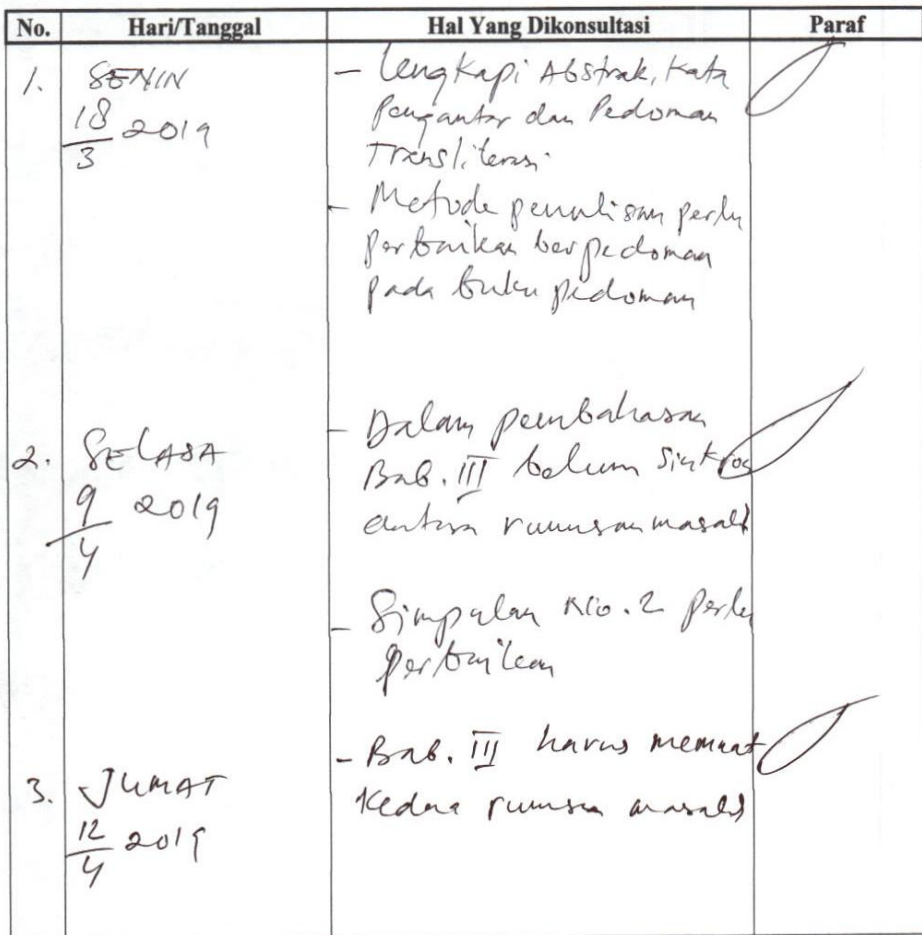 No. Hari/Tanggal Hal Yang Dikonsultasi Paraf
1. SENIN
18/3 2019
- Lengkapi Abstrak, Kata
Pengantar dan Pedoman
Transliterasi.
- Metode penulisan perlu
perbaikan berpedoman
pada buku pedoman
2. SELASA
9/4 2019
- Dalam pembahasan
Bab. III belum Sinkron
antara rumusan masalah
- Simpulan No. 2 perlu
perbaikan
3. JUMAT
12/4 2019
- Bab. III harus memuat
kedua rumusan masalah